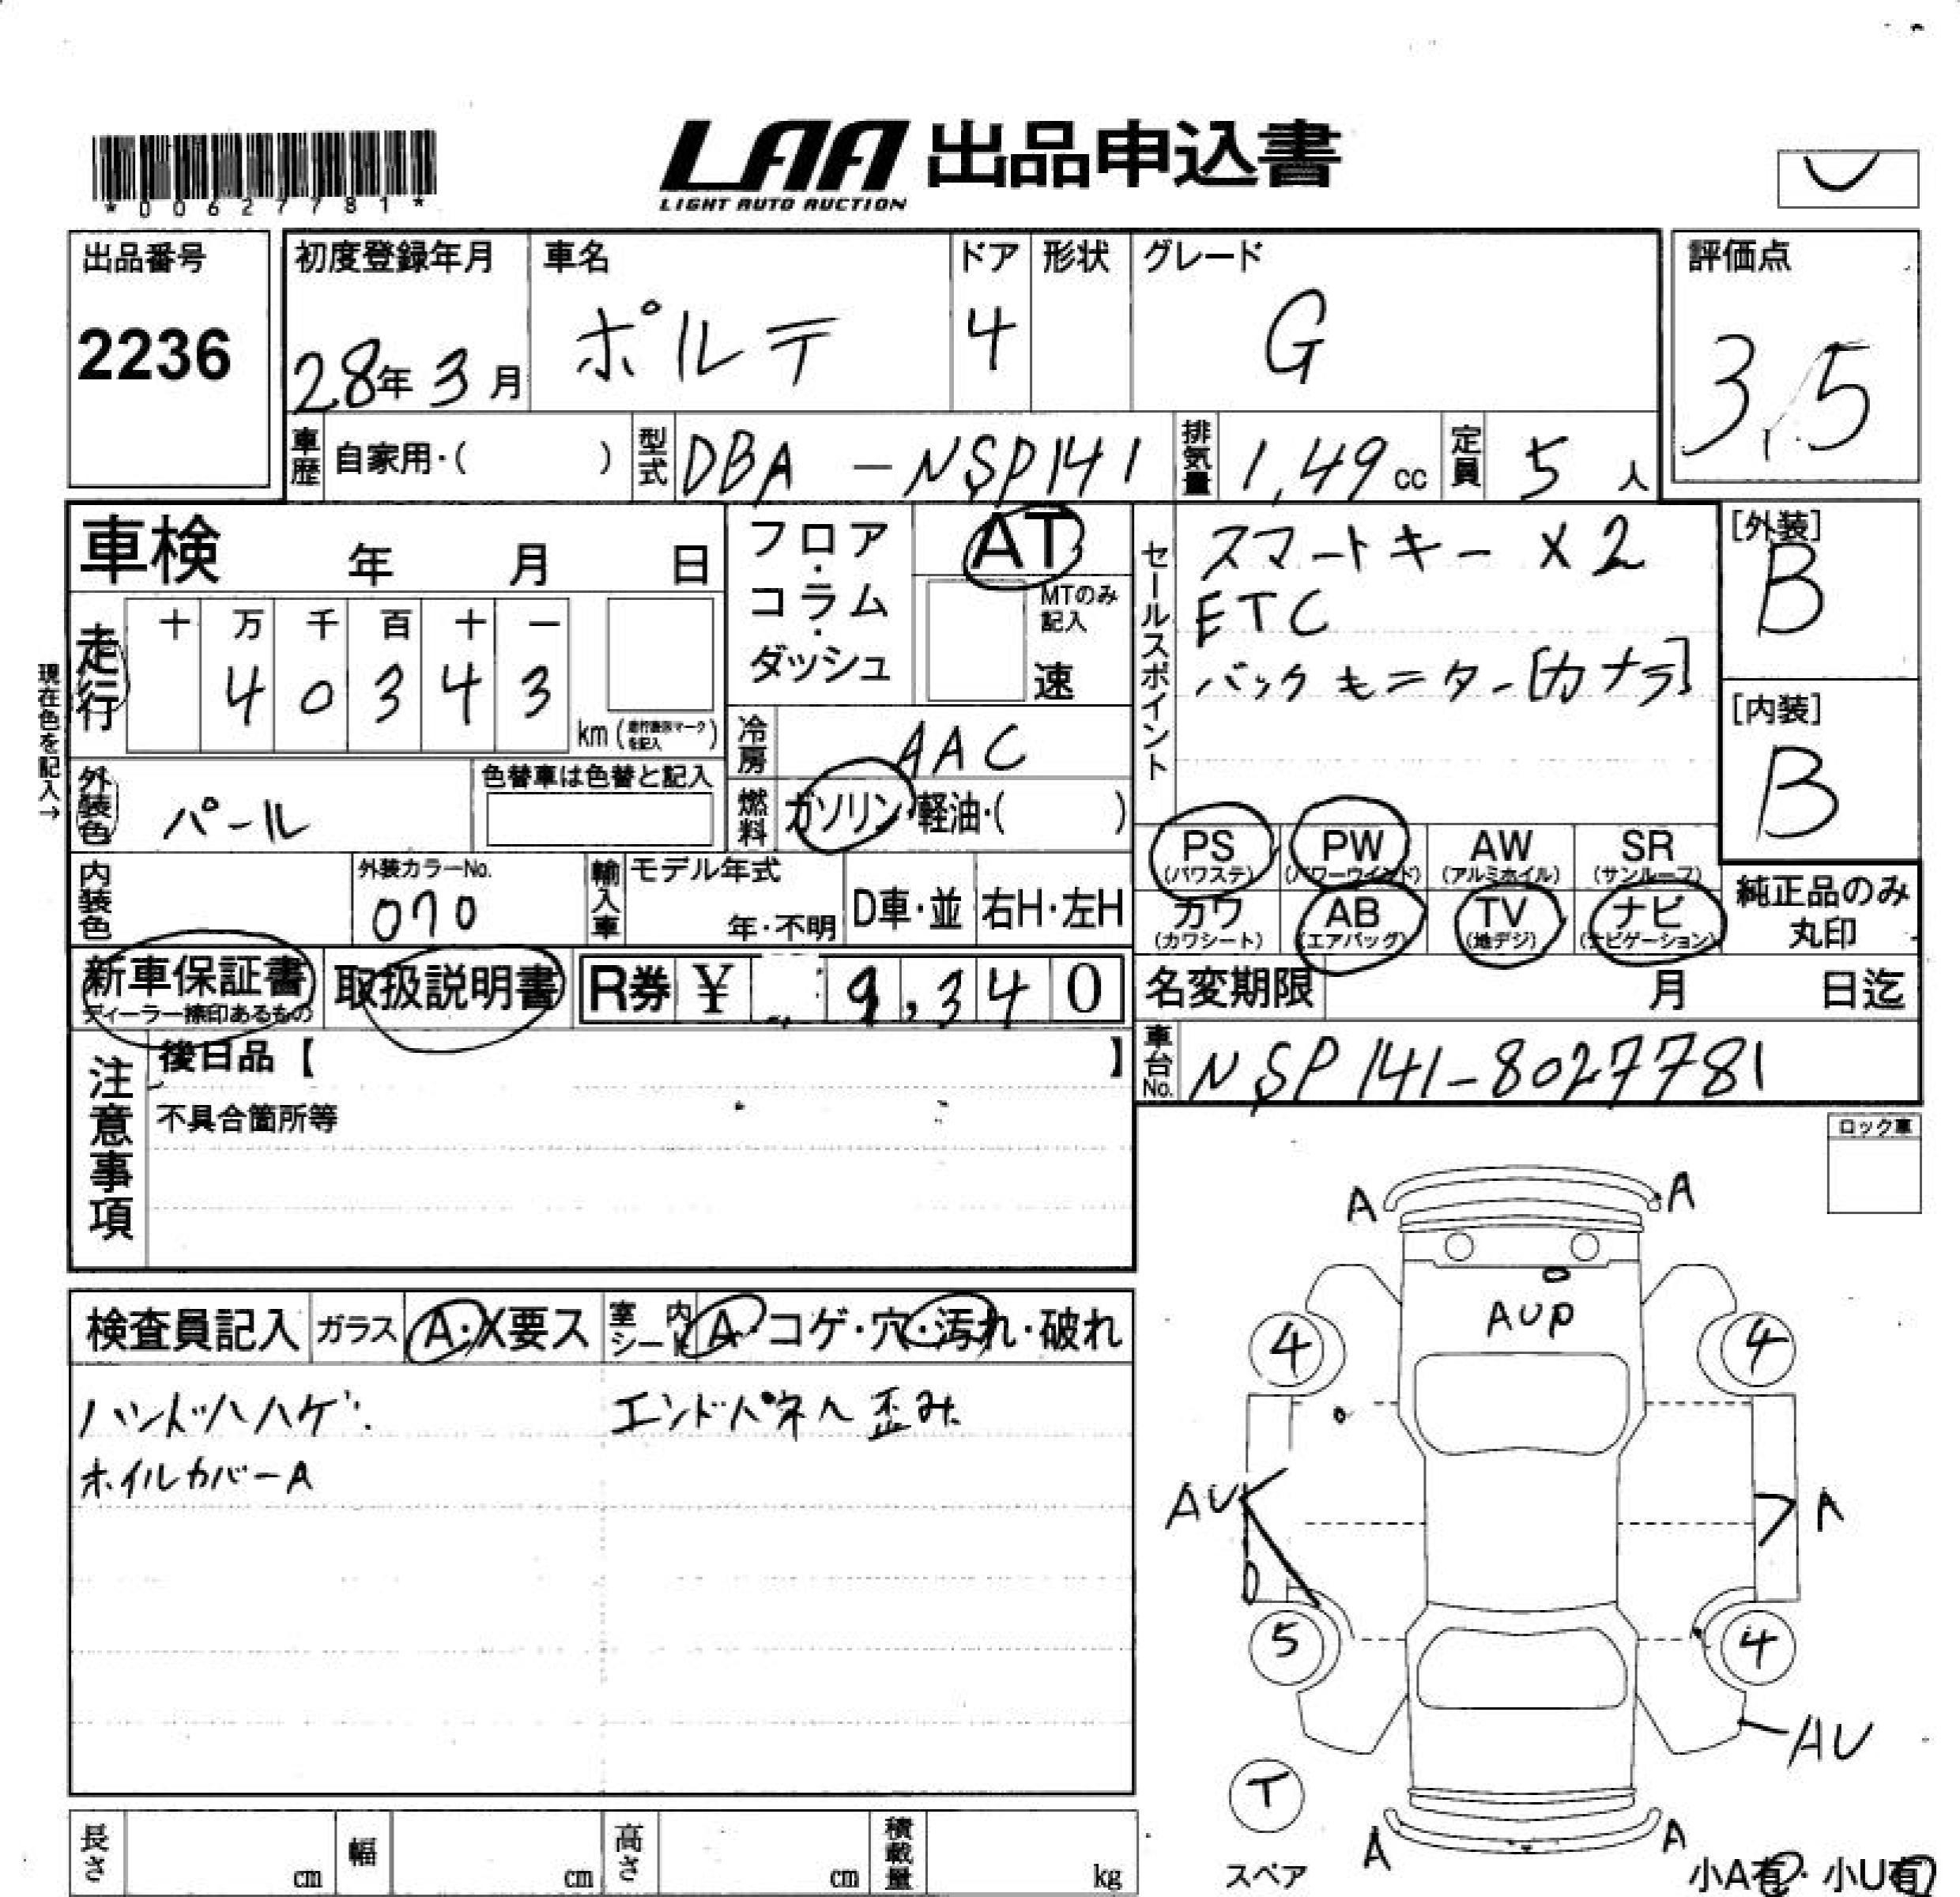 *00627781*
LAA 出品申込書
LIGHT AUTO AUCTION
出品番号
2236
初度登録年月
28年 3月
車名
ポルテ
ドア
4
形状
グレード
G
評価点
3.5
車歴 自家用・( )
型式 DBA-NSP141
排気量 1,49cc
定員 5人
車検 年 月 日
現在色を記入→
走行 十 万 千 百 十 一
4 0 3 4 3
km
外装色 パール
色替車は色替と記入
内装色
外装カラーNo.
070
輸入車 モデル年式
年・不明
D車・並 右H・左H
フロア・コラム・ダッシュ
AT
MTのみ記入
速
冷房 AAC
燃料 ガソリン・軽油・( )
セールスポイント
スマートキー X2
ETC
バックモニター[カナラ]
[外装]
B
[内装]
B
PS (パワステ) PW (パワーウインド) AW (アルミホイル) SR (サンルーフ)
カワ (カワシート) AB (エアバッグ) TV (地デジ) ナビ (ナビゲーション)
純正品のみ
丸印
新車保証書
ディーラー捺印あるもの
取扱説明書
R券 ¥ 9,340
名変期限 月 日迄
車台No. NSP141-8027781
注意事項
後日品【 】
不具合箇所等
ロック車
検査員記入 ガラス A・X要ス 室内シート A・コゲ・穴・汚れ・破れ
ハンドルハゲ エンドパネル歪み
ホイルカバーA
A A
AUP
4 4
AU A
5 4
AU
T
スペア
A A
小A有・小U有
長さ cm 幅 cm 高さ cm 積載量 kg